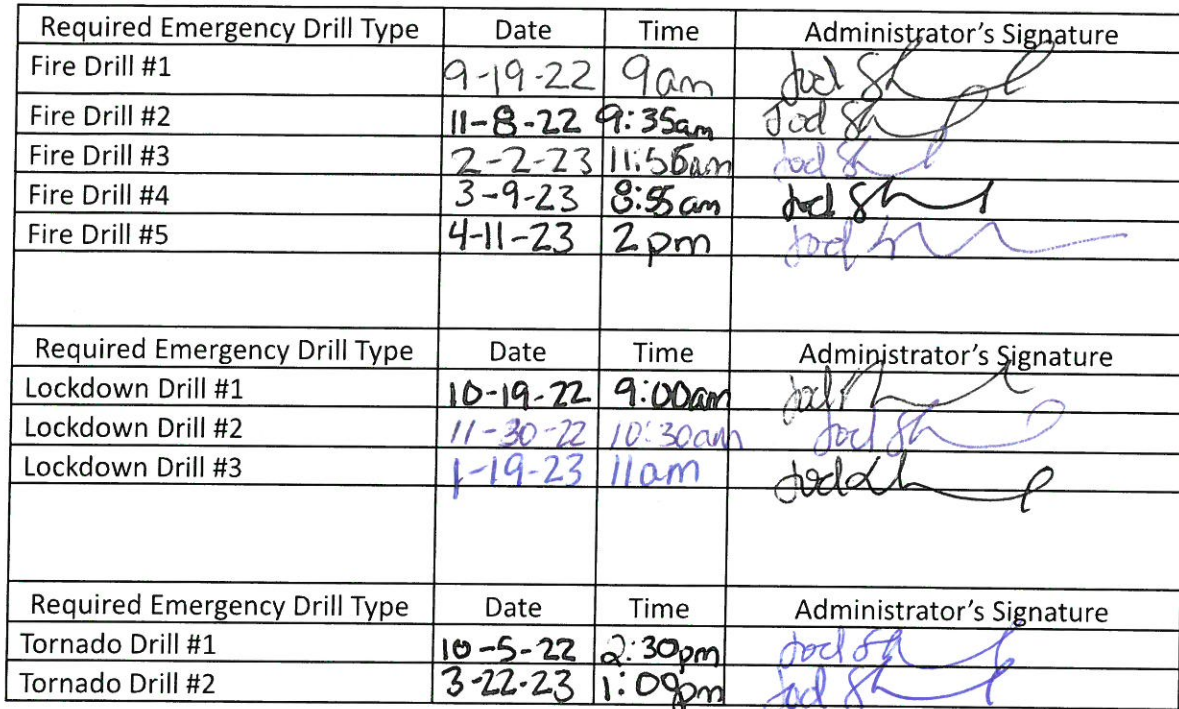 Required Emergency Drill Type Date Time Administrator's Signature
Fire Drill #1 9-19-22 9am
Fire Drill #2 11-8-22 9:35am
Fire Drill #3 2-2-23 11:56am
Fire Drill #4 3-9-23 8:55am
Fire Drill #5 4-11-23 2pm
Required Emergency Drill Type Date Time Administrator's Signature
Lockdown Drill #1 10-19-22 9:00am
Lockdown Drill #2 11-30-22 10:30am
Lockdown Drill #3 1-19-23 11am
Required Emergency Drill Type Date Time Administrator's Signature
Tornado Drill #1 10-5-22 2:30pm
Tornado Drill #2 3-22-23 1:09pm